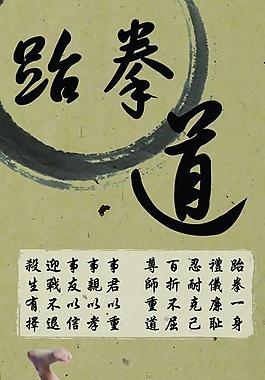 跆拳道
跆拳一身
禮儀廉恥
忍耐克己
百折不屈
尊師重道
事君以重
事親以孝
事友以信
迎戰不退
殺生有擇